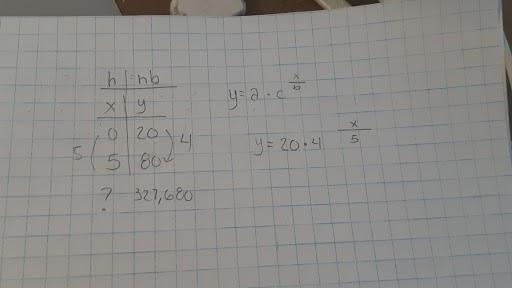 h | nb
x | y
0 | 20
5 | 80
5 4
? 327,680
y = a · c^(x/b)
y = 20 · 4^(x/5)